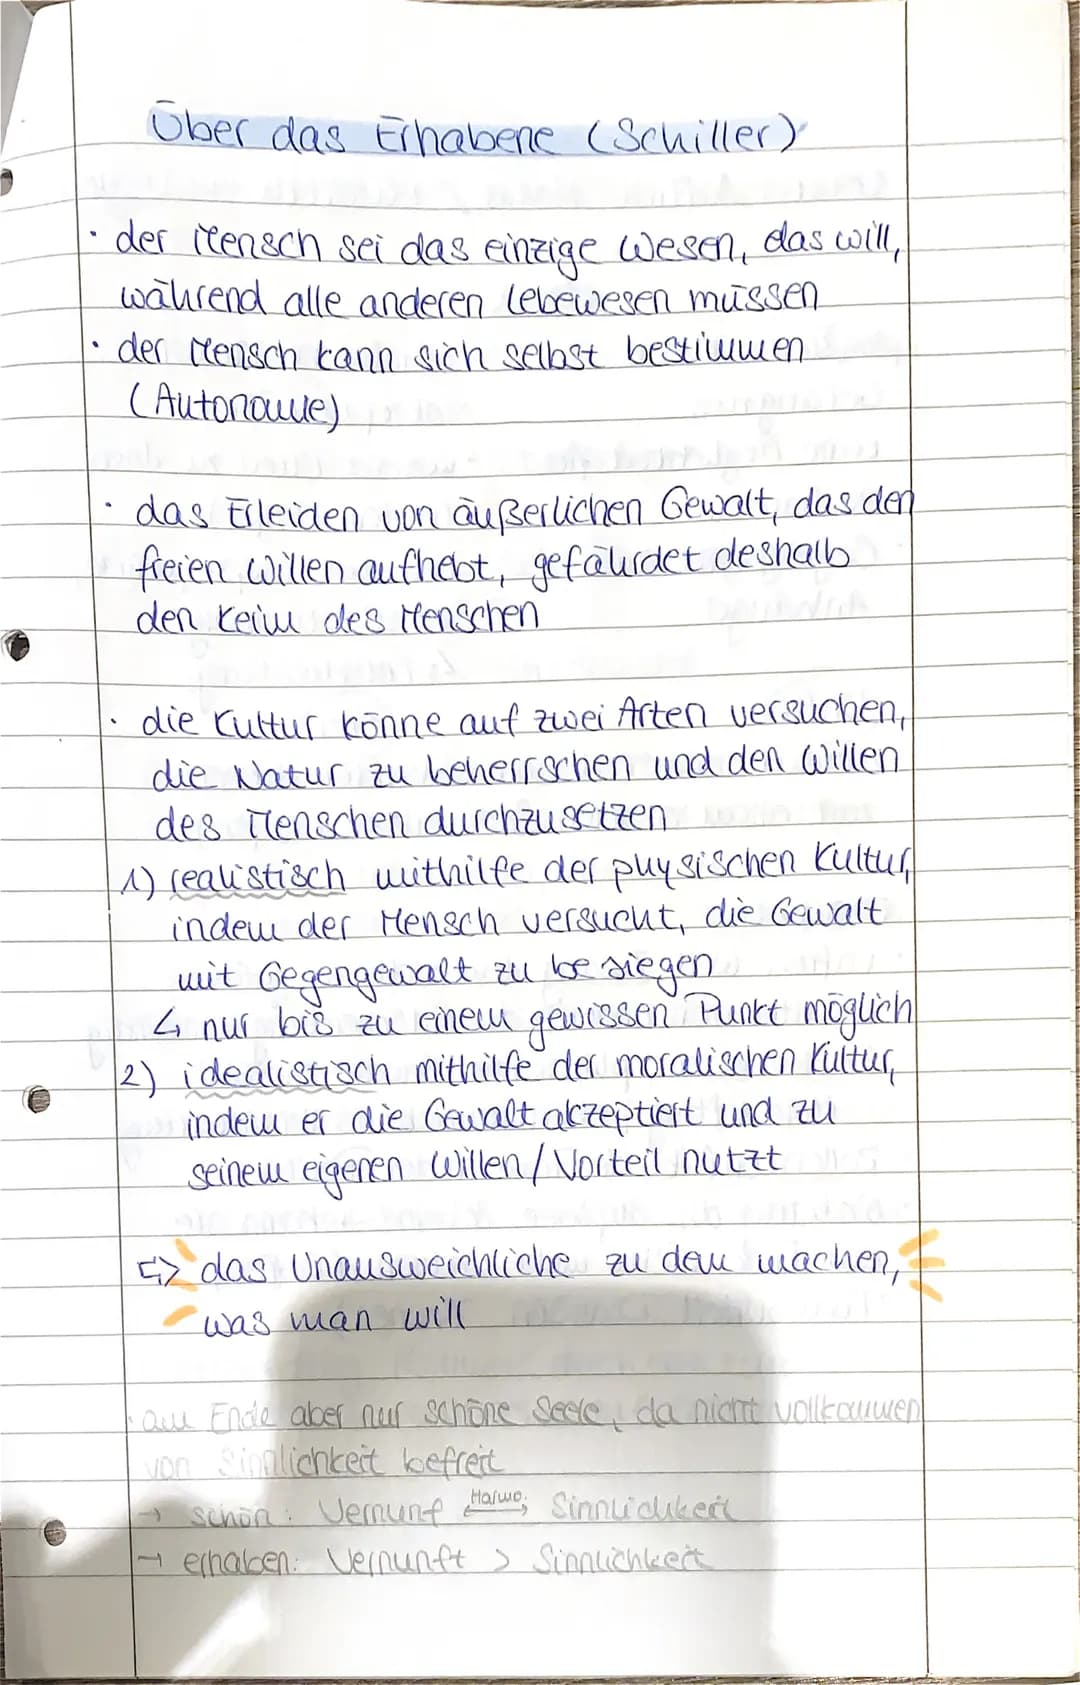 Über das Erhabene (Schiller)
· der Mensch sei das einzige Wesen, das will,
während alle anderen Lebewesen müssen
· der Mensch kann sich selbst bestimmen
(Autonomie)
· das Erleiden von äußerlichen Gewalt, das den
freien Willen aufhebt, gefährdet deshalb
den Keim des Menschen
· die Kultur könne auf zwei Arten versuchen,
die Natur zu beherrschen und den Willen
des Menschen durchzusetzen
1) realistisch mithilfe der physischen Kultur,
indem der Mensch versucht, die Gewalt
mit Gegengewalt zu besiegen
↳ nur bis zu einem gewissen Punkt möglich
2) idealistisch mithilfe der moralischen Kultur,
indem er die Gewalt akzeptiert und zu
seinem eigenen Willen/Vorteil nutzt
=> das Unausweichliche zu dem machen,
was man will
· am Ende aber nur schöne Seele, da nicht vollkommen
von Sinnlichkeit befreit
→ schön: Vernunft Harmo. Sinnlichkeit
→ erhaben: Vernunft > Sinnlichkeit